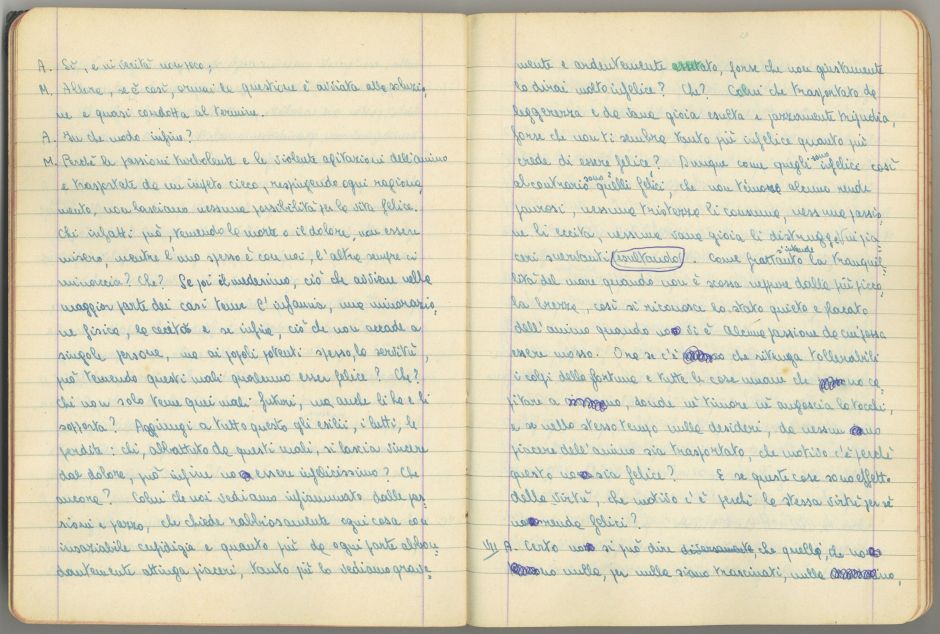 A. Sì, e in verità non poco,
M. Allora, se è così, ormai la questione è avviata alla soluzio,
ne e quasi condotta al termine.
A. In che modo infine?
M. Perché le passioni turbolente e le violente agitazioni dell'animo
e trasportate da un impeto cieco, respingendo ogni ragiona,
mento, non lasciano nessuna possibilità per la vita felice.
Chi infatti può, temendo la morte o il dolore, non essere
misero, mentre l'uno spesso è con noi, l'altra sempre ci
minaccia? Che? Se poi il medesimo, ciò che avviene nella
maggior parte dei casi teme l'infamia, una minorazio,
ne fisica, la cecità e se infine, ciò che non accade a
singole persone, ma ai popoli potenti spesso, la servitù,
può temendo questi mali qualcuno esser felice? Che?
Chi non solo teme quei mali futuri, ma anche li ha e li
sopporta? Aggiungi a tutto questo gli esilii, i lutti, le
perdite: chi, abbattuto da questi mali, si lascia vincere
dal dolore, può infine no essere infelicissimo? Che
ancora? Colui che noi vediamo infiammato dalle pas,
sioni e pazzo, che chiede rabbiosamente ogni cosa con
insaziabile cupidigia e quanto più da ogni parte abbon
dantemente attinga piaceri, tanto più lo vediamo grave,
mente e ardentemente assetato, forse che non giustamente
lo dirai molto infelice? Che? Colui che trasportato da
leggerezza e da vana gioia esulta e pazzamente tripudia,
forse che non ti sembra tanto più infelice quanto più
crede di essere felice? Dunque come quegli sono infelici così
al contrario sono quelli felici, che non timore alcuno rende
paurosi, nessuna tristezza li consuma, nessuna passio
ne li eccita, nessuna vana gioia li distrugge nei pia
ceri snervanti esultando. Come frattanto la tranquil
lità del mare quando non è scossa neppure dalla più picco,
la brezza, così si riconosce lo stato quieto e placato
dell'animo quando no vi è alcuna passione da cui possa
essere mosso. Ora se c'è che ritenga tollerabili
i colpi della fortuna e tutte le cose umane che no ca
pitare a no, donde né timore né angoscia lo tocchi,
e se nello stesso tempo nulla desideri, da nessun
piacere dell'animo sia trasportato, che motivo c'è perché
questo no sia felice? E se queste cose sono effetto
della virtù, che motivo c'è perché la stessa virtù per sé
no renda felici?
A. Certo no si può dire diversamente che quelli, che no
no nulla, per nulla siano trascinati, nulla no,